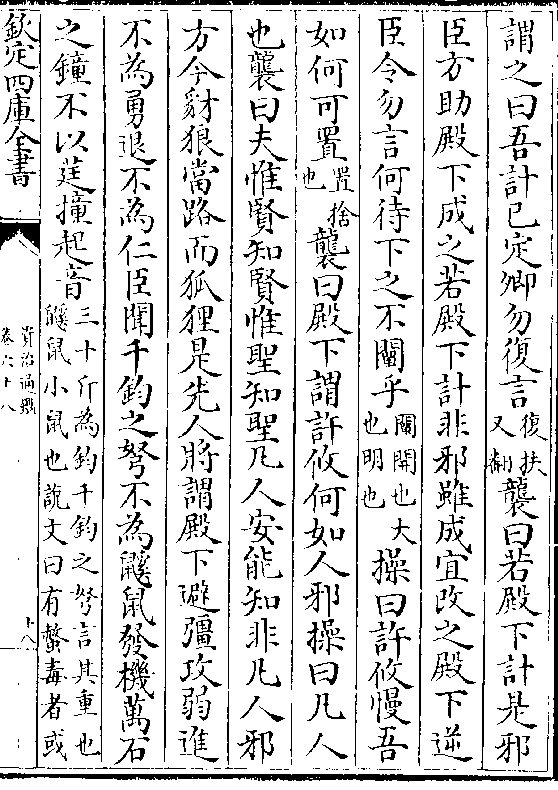 謂之曰吾計已定卿勿復言復扶又翻襲曰若殿下計是邪
臣方助殿下成之若殿下計非邪雖成宜改之殿下逆
臣令勿言何待下之不闡乎闡開也大也明也操曰許攸慢吾
如何可置置捨也襲曰殿下謂許攸何如人邪操曰凡人
也襲曰夫惟賢知賢惟聖知聖凡人安能知非凡人邪
方今豺狼當路而狐狸是先人將謂殿下避彊攻弱進
不為勇退不為仁臣聞千鈞之弩不為鼷鼠發機萬石
之鐘不以莛撞起音三十斤為鈞千鈞之弩言其重也鼷鼠小鼠也說文曰有螫毒者或
欽定四庫全書
資治通鑑
卷六十八
十八